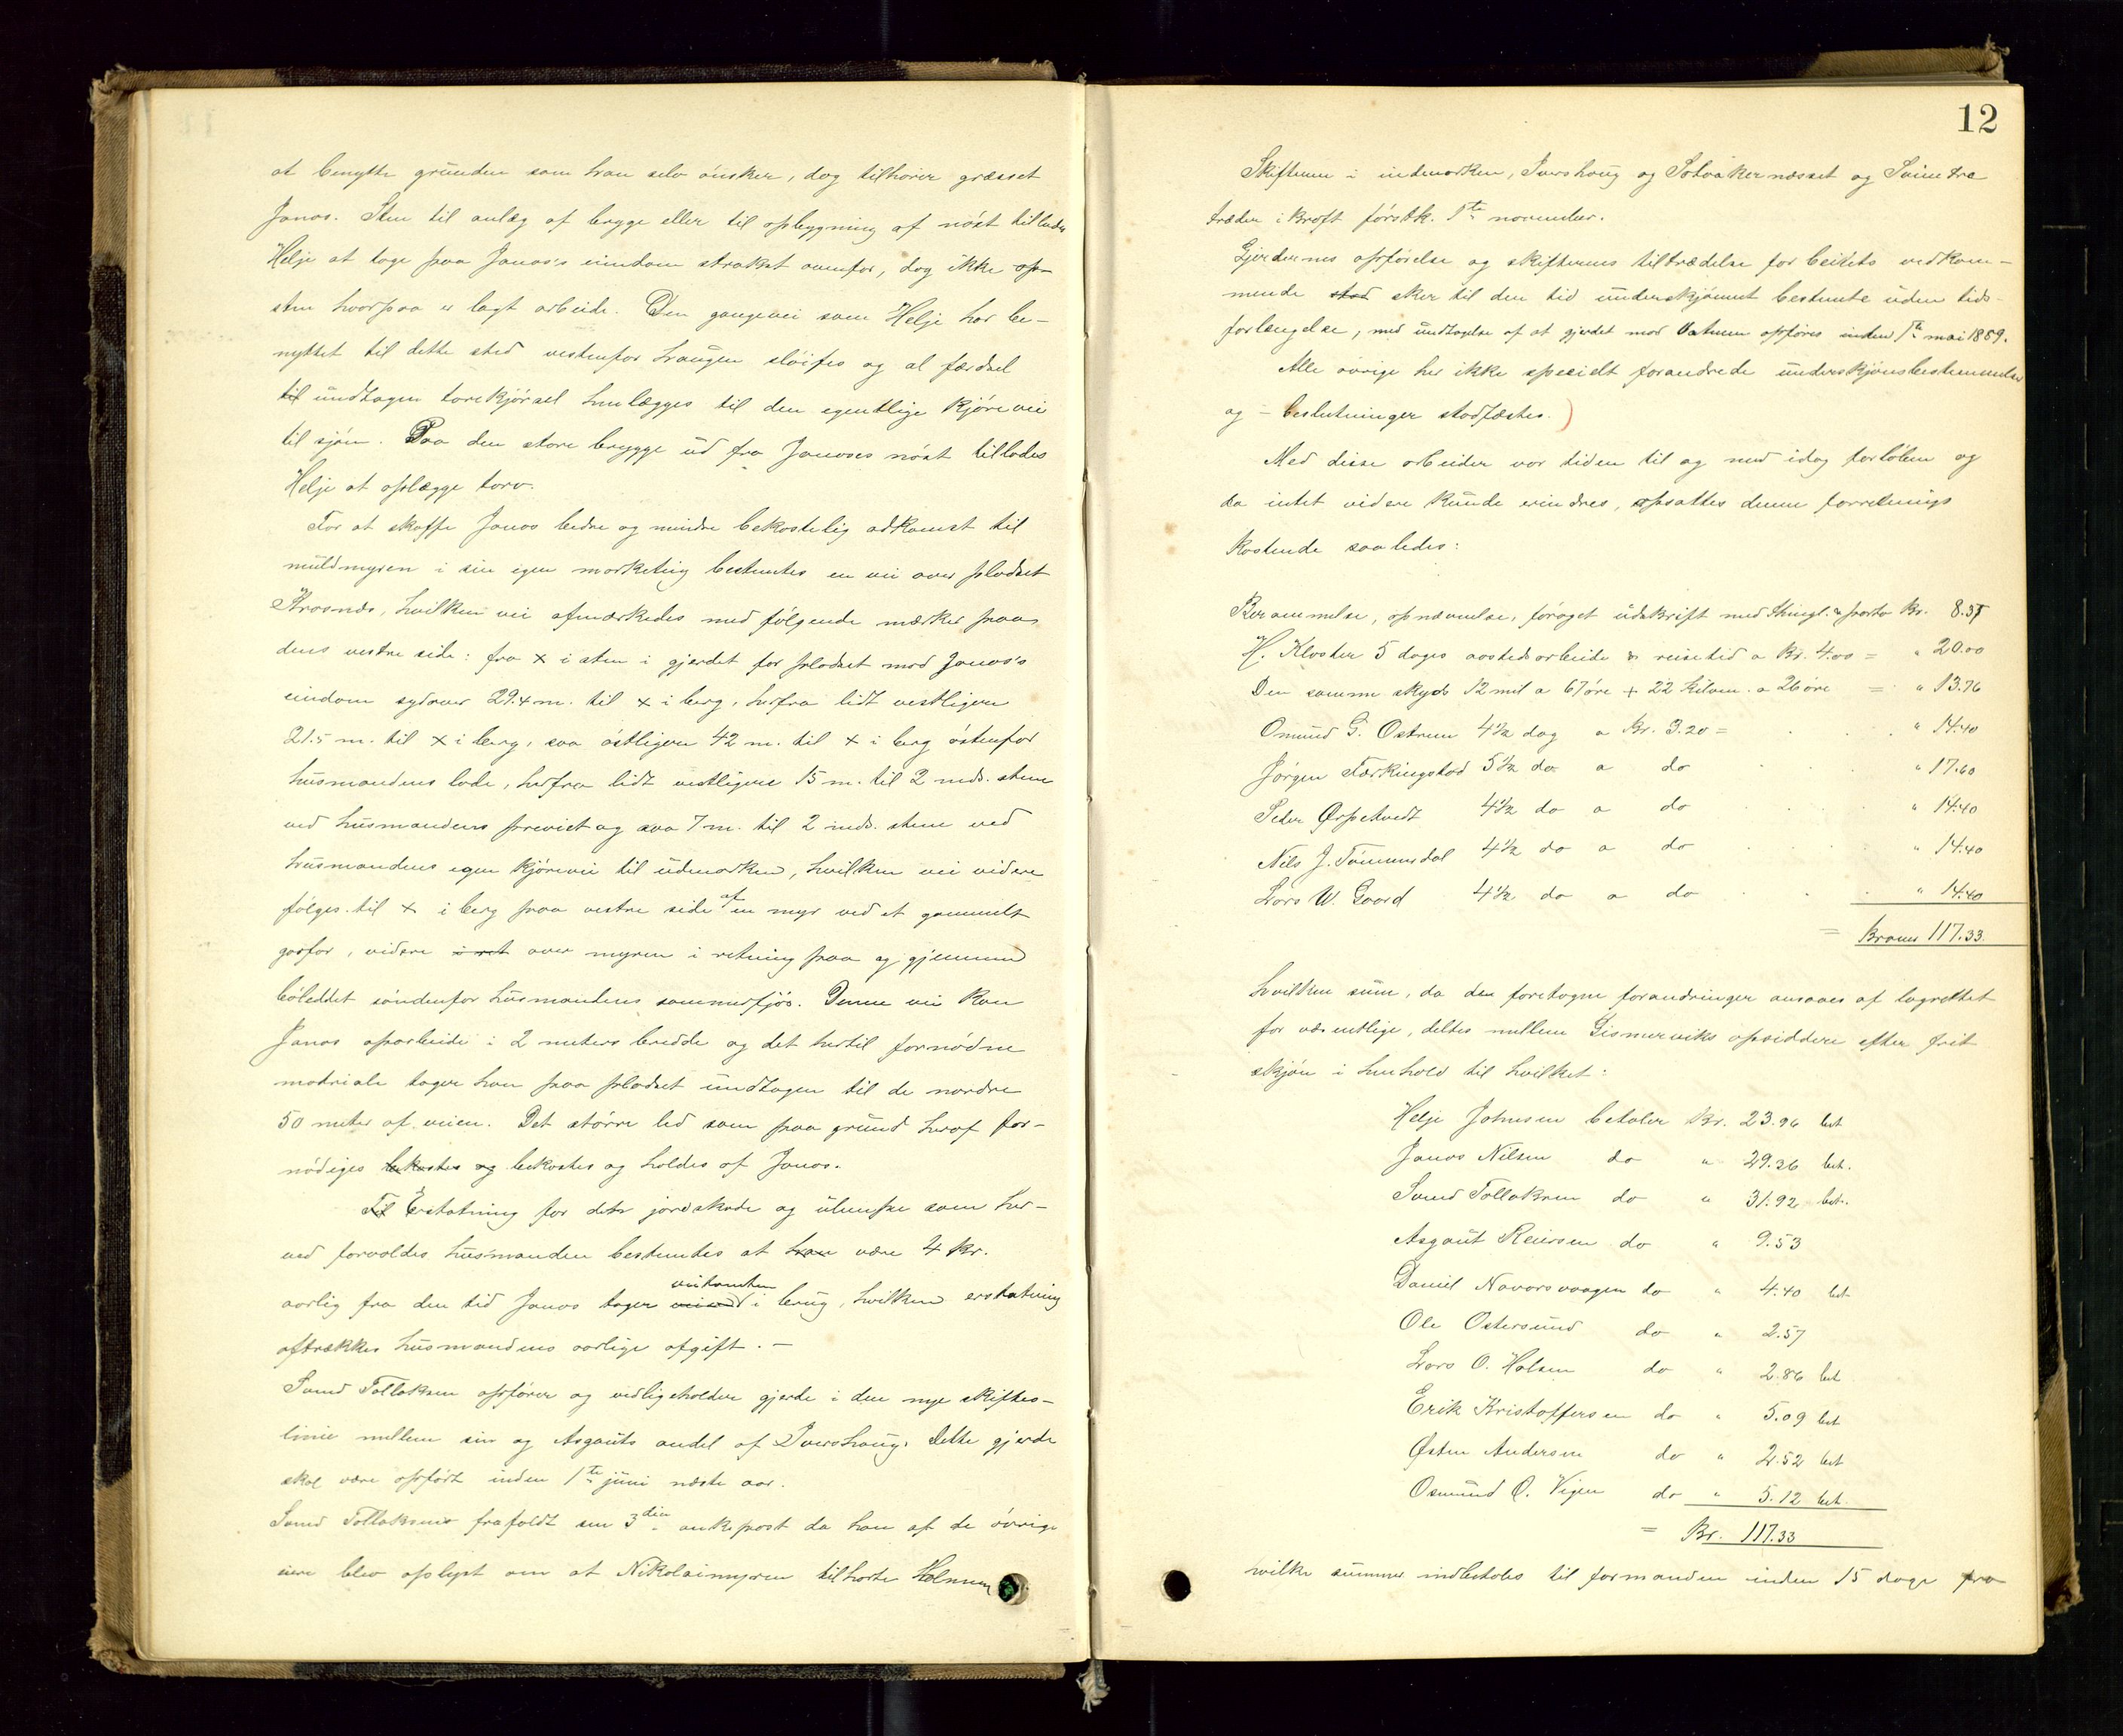 at benytte grunden som han selv ønsker, dog tilhører græsset
Jonas. Sten til anlæg af brygge eller til opbygning af nøst tillades
Helje at tage paa Jonas's eiendom strakst ovenfor, dog ikke op-
sten hvorpaa er lagt arbeide. Den gangevei som Helje har be-
nyttet til dette sted vestenfor haugen sløifes og al færdsel
til undtagen torvkjørsel henlægges til den egentlige kjørevei
til sjøen. Paa den store brygge ud fra Jonases nøst tillades
Helje at oplægge torv.
For at skaffe Jonas bedre og mindre bekostelig adkomst til
muldmyren i sin egen marketeig bestemtes en vei over pladset
hvilken vei afmærkedes med følgende mærker paa
dens vestre side: fra x i sten i gjerdet for pladset mod Jonas's
eiendom sydover 29.4 m. til x i berg, herfra lidt vestligere
21.5 m. til x i berg, saa østligere 42 m. til x i berg østenfor
husmandens lade, herfra lidt vestligere 15 m. til 2 neds. stene
ved husmandens og saa 7 m. til 2 neds. stene ved
husmandens egen kjørevei til udmarken, hvilken vei videre
følges til x i berg paa vestre side af en myr ved et gammelt
garfar, videre i ret over myren i retning paa og gjennem
bøleddet søndenfor husmandens sommerfjøs. Denne vei kan
Jonas oparbeide i 2 meters bredde og det hertil fornødne
matriale tager han paa pladset undtagen til de nordre
50 meter af veien. Det større led som paa grund heraf for-
nødiges bekostes og bekostes og holdes af Jonas.
Til Erstatning for den jordskade og ulempe som her-
ved forvoldes husmanden bestemtes at han være 4 kr.
aarlig fra den tid Jonas tager veitomten i brug, hvilken erstatning
aftrækkes husmandens aarlige afgift. -
Svend Tollaksen opfører og vedligeholder gjerde i den nye skiftes-
linie mellem sin og Asgauts andel af Ivershaug. Dette gjerde
skal være opført inden 1te juni næste aar.
Svend Tollaksens frafaldt sin 3die ankepost da han af de øvrige
eiere blev oplyst om at Nikolaimyren tilhørte Holmen
12
Skifterne i indmarken, Ivershaug og Solvakernæsset og
træder i kraft førstk. 1te november.
Gjerdernes opførelse og skifternes tiltrædelse for beitets vedkom-
mende stad sker til den tid underskjønnet bestemte uden tids-
forlængelse, med undtagelse af at gjerdet mod Vatnem opføres inden 1te mai 1859.
Alle øvrige her ikke specielt forandrede underskjønsbestemmelser
og - beslutninger stadfæstes.)
Med disse arbeider var tiden til og med idag forløben og
da intet videre kunde erindres, opsattes denne forretnings
kostende saaledes:
Berammelse, opnævnelse, forøget udskrift med thingl. & porto Kr. 8.37
H. Kloster 5 dages aastedsarbeide & reisetid a Kr. 4.00 = " 20.00
Den samme skyds 12 mil a 67 øre + 22 kilom. a 26 øre = " 13.76
Omund G. Ostrem 4½ dag a Kr. 3.20 = " 14.40
Jørgen Færkingstad 5½ do a do " 17.60
Peder Ørpetvedt 4½ do a do " 14.40
Nils J. Tømmerdal 4½ do a do " 14.40
Lars W. Gaard 4½ do a do " 14.40
= Kroner 117.33
hvilken sum, da den foretagne forandringer ansaaes af lagrettet
for væsentlige, deltes mellem Gismerviks opsiddere efter frit
skjøn i henhold til hvilket:
Helje Johnsen betaler Kr. 23.96 bet
Jonas Nilsen do " 29.36 bet.
Svend Tollaksen do " 31.92 bet.
Asgaut Reiersen do " 9.53
Daniel Navarsvaagen do " 4.40 bet
Ole Ostersund do " 2.57
Lars O. Holsen do " 2.86 bet
Erik Kristoffersen do " 5.09 bet
Østen Andersen do " 2.52 bet
Osmund O. Vigen do " 5.12 bet.
= Kr. 117.33
hvilke summer indbetales til formanden inden 15 dage fra